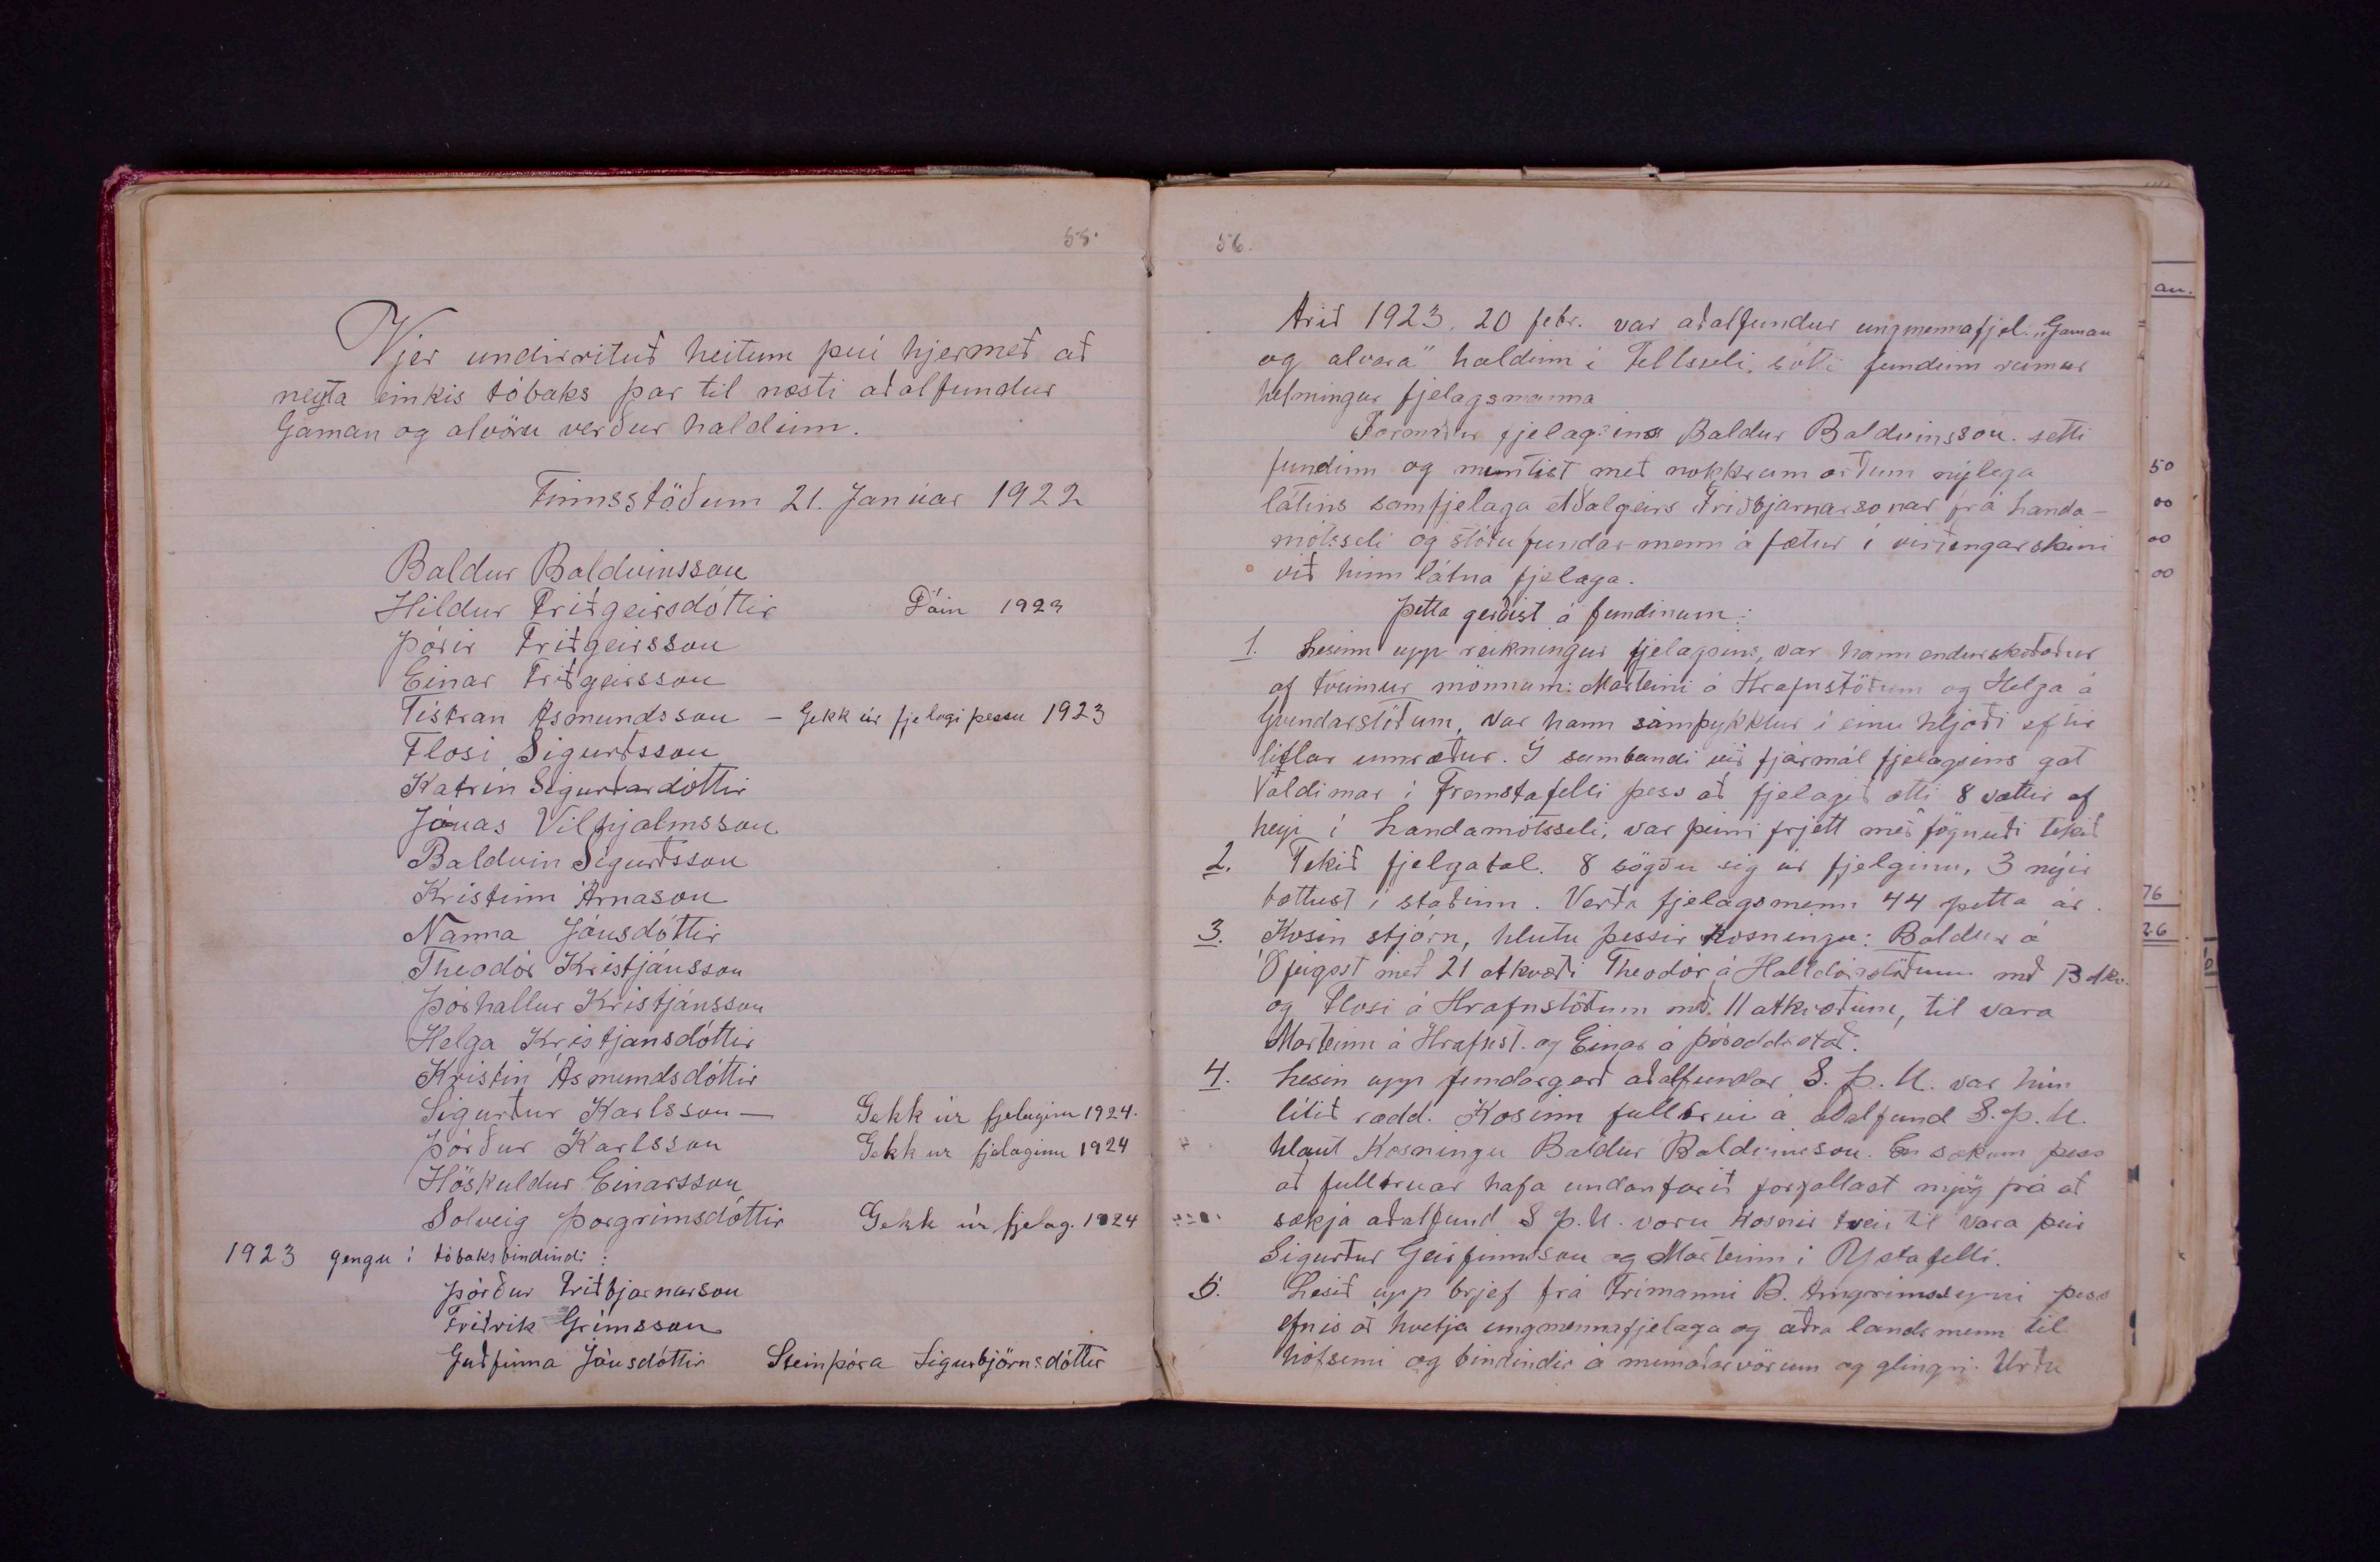 55.
Vjer undirrituð heitum því hjermeð að
neyta einkis tóbaks þar til næsti aðalfundur
Gaman og alvöru verður haldinn.
Finnsstöðum 21. Janúar 1922
Baldur Baldvinsson
Hildur Friðgeirsdóttir Dáin 1923
Þórir Friðgeirsson
Einar Friðgeirsson
Tístran Ásmundsson – Gekk úr fjelagi þessu 1923
Flosi Sigurðsson
Katrín Sigurðardóttir
Jónas Vilhjalmsson
Baldvin Sigurðsson
Kristinn Árnason
Nanna Jónsdóttir
Theodór Kristjánsson
Þórhallur Kristjánsson
Helga Kristjansdóttir
Kristín Ásmundsdóttir
Sigurður Karlsson — Gekk úr fjelaginu 1924.
Þórður Karlsson Gekk úr fjelaginu 1924
Höskuldur Einarsson
Solveig Þorgrímsdóttir Gekk úr fjelag. 1924
1923 gengu í tóbaksbindindi:
Þórður Friðbjarnarson
Friðrik Grímsson
Guðfinna Jónsdóttir Steinþóra Sigurbjörnsdóttir
56.
Árið 1923. 20 febr. var aðalfundur ungmennafjel. „Gaman
og alvara" haldinn í Fellsseli, sótti fundinn rúmur
helmingur fjelagsmanna
Formaður fjelagsins Baldur Baldvinsson. setti
fundinn og mintist með nokkrum orðum nýlega
látins samfjelaga Aðalgeirs Friðbjarnarsonar frá Landa-
mótsseli og stóðu fundarmenn á fætur í virðingarskini
við hinn látna fjelaga.
Þetta gerðist á fundinum:
1. Lesinn upp reikningur fjelagsins, var hann endurskoðaður
af tveimur mönnum: Marteini á Hrafnstöðum og Helga á
Gvendarstöðum, var hann samþykktur í einu hljóði eftir
litlar umræður. Í sambandi við fjármál fjelagsins gat
Valdimar í Fremstafelli þess að fjelagið ætti 8 vættir af
heyi í Landamótsseli, var þeirri frjett með fögnuði tekið
2. Tekið fjelgatal. 8 sögðu sig úr fjelginu, 3 nýir
bættust í staðinn. Verða fjelagsmenn 44 þetta ár.
3. Kosin stjórn, hlutu þessir kosningu: Baldur á
Ófeigsst með 21 atkvæði Theodór á Halldórsstöðum með 13 atkv.
og Flosi á Hrafnstöðum með 11 atkvæðum, til vara
Marteinn á Hrafnst. og Einar á Þóroddsstað.
4. Lesin upp fundargerð aðalfundar S. Þ. U. var hún
lítið rædd. Kosinn fulltrúi á aðalfund S. Þ. U.
hlaut kosningu Baldur Baldvinsson. En sökum þess
að fulltruar hafa undanfarið forfallast mjög frá að
sækja aðalfund S Þ. U. voru kosnir tveir til vara þeir
Sigurður Geirfinnsson og Marteinn í Ystafelli.
5. Lesið upp brjef frá Frímanni B. Arngrímssyni þess
efnis að hvetja ungmennafjelaga og aðra landsmenn til
hófsemi og bindindis á munaðarvörum og glingri. Urðu
au.
50
00
00
00
76
26